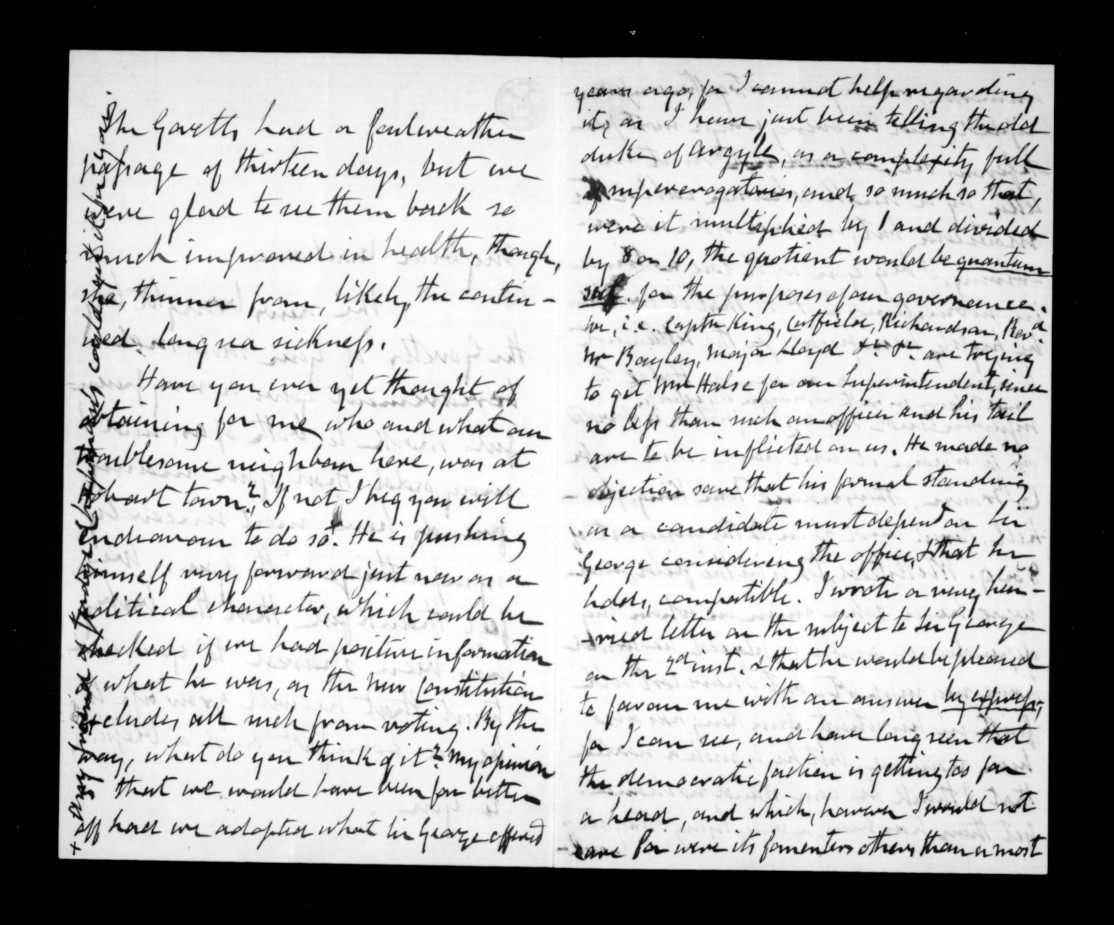 The Govetts had a foul weather
passage of thirteen days, but we
were glad to see them back so
much improved in health, though,
she, thinner from, likely, the contin-
ued long sea sickness.
Have you ever yet thought of
obtaining for me who and what our
troublesome neighbour here, was at
Hobart town? If not I beg you will
endeavour to do so. He is pushing
himself very forward just now as a
political character, which could be
checked if we had positive information
what he was, as the new Constitution
excludes all such from voting. By the
way, what do you think of it? My opinion
that we would have been far better
off had we adopted what Sir George offered
years ago, for I cannot help regarding
it, as I have just been telling the old
duke of Argyle, as a complexity full
of supererogatories, and so much so that,
were it multiplied by 1 and divided
by 8 or 10, the quotient would be quantum
suf. for the purposes of our governance.
We, i.e. Captn King, Cutfield, Richardson, Revd
Mr Bayley, Major Lloyd &c. &c. are trying
to get Mr Halse for our Superintendent, since
no less than such an officer and his tail
are to be inflicted on us. He made no
objection save that his formal standing
as a candidate must depend on Sir
George considering the office, & that he
holds, compatible. I wrote a very hur-
ried letter on the subject to Sir George
on the 2d inst. & that he would be pleased
to favour me with an answer by express,
for I can see, and have long seen that
the democratic faction is getting too far
a head, and which, however I would not
care for were its fomenters others than a most
+ any friend at
could get it for you.